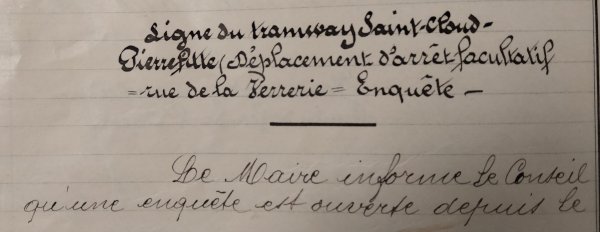 Ligne du tramway Saint-Cloud-
Pierrefitte (Déplacement d'arrêt facultatif
=rue de la Verrerie= Enquête -
Le Maire informe le Conseil
qu'une enquête est ouverte depuis le